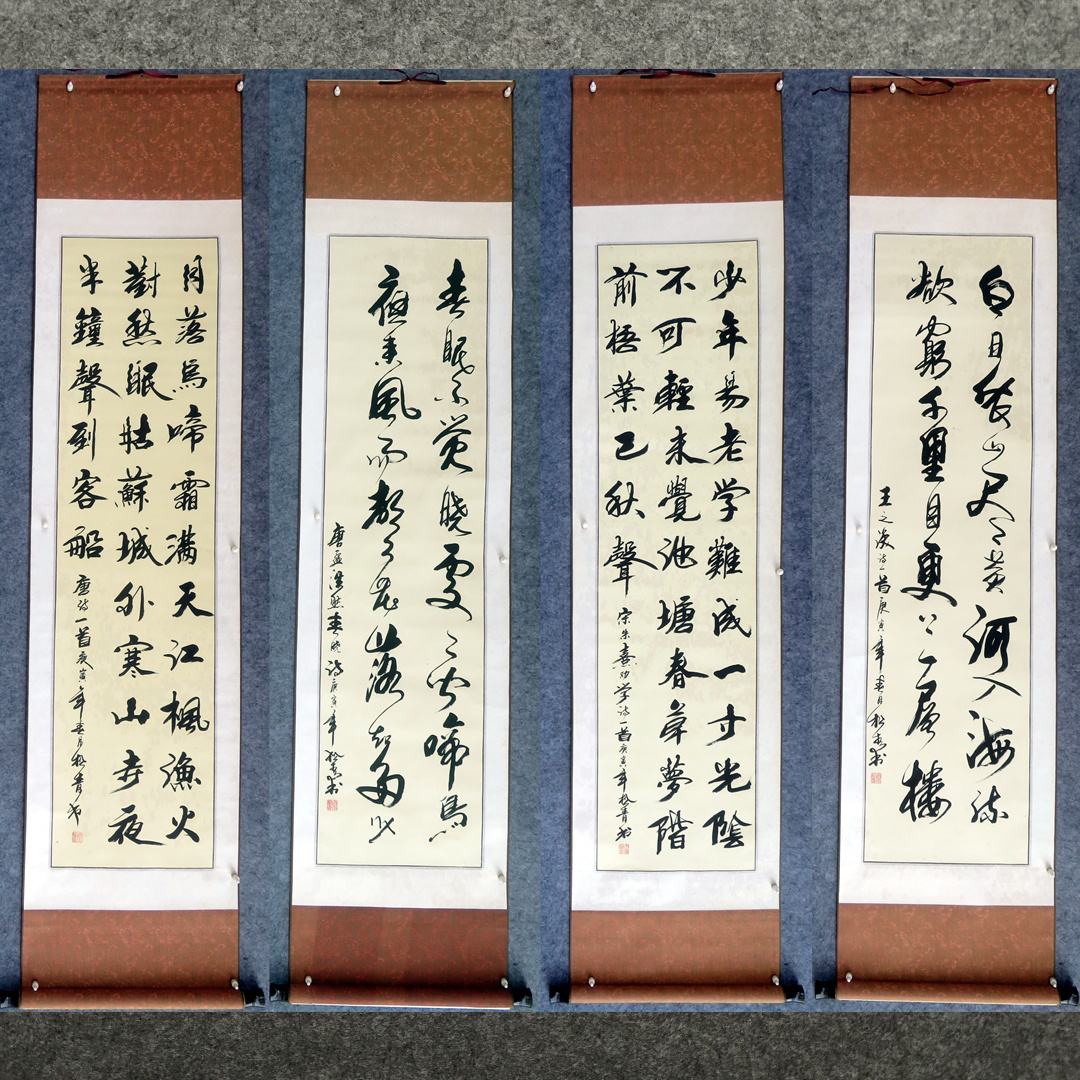 白日依山尽黄河入海流
欲窮千里目更上一層樓
王之涣诗一首庚寅年春月松青书
少年易老学難成一寸光陰
不可輕未覺池塘春草夢階
前梧葉已秋聲 宋朱熹劝学诗一首庚寅年松青书
春眠不觉曉處々闻啼鳥
夜来風雨聲花落知多少
唐孟浩然春晓诗庚寅年松青书
月落烏啼霜满天江楓漁火
對愁眠姑蘇城外寒山寺夜
半鐘聲到客船 唐诗一首庚寅年春月松青书